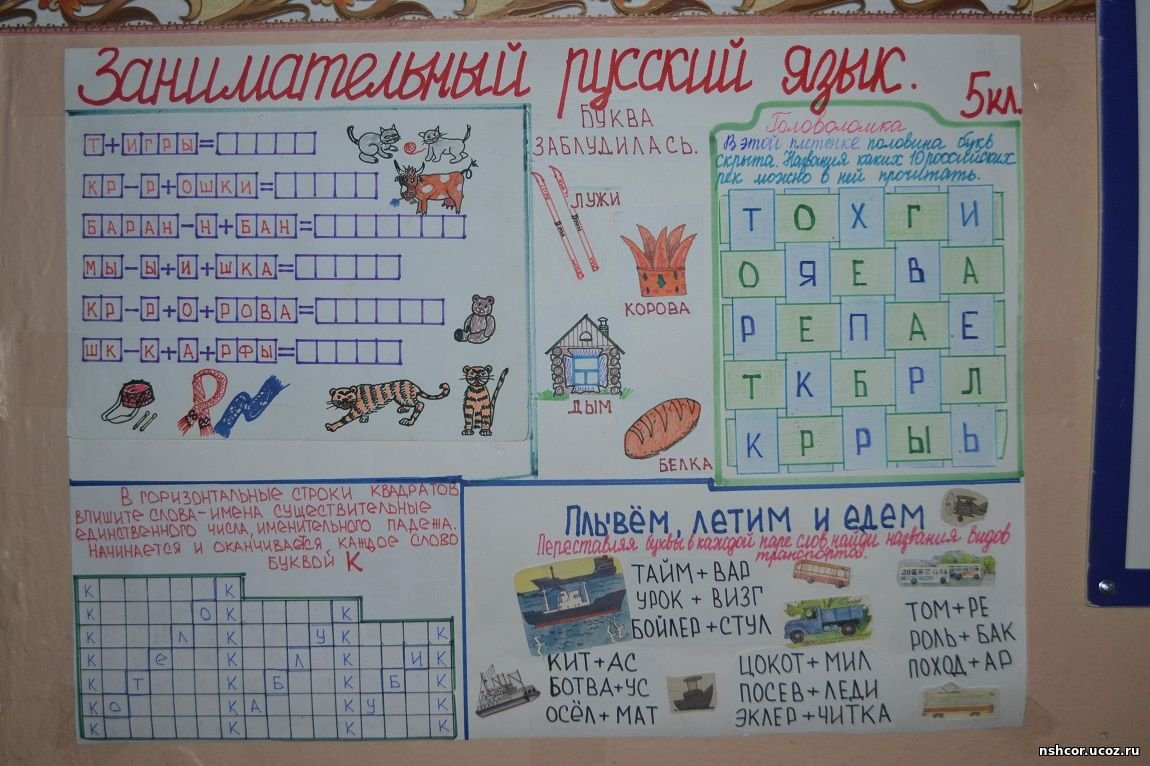 Занимательный русский язык.
5кл.
Т+ИГРЫ=
КР-Р+ОШКИ=
БАРАН-Н+БАН=
МЫ-Ы+И+ШКА=
КР-Р+О+РОВА=
ШК-К+А+РФЫ=
БУКВА
ЗАБЛУДИЛАСЬ.
ЛУЖИ
КОРОВА
ДЫМ
БЕЛКА
Головоломка
В этой плетёнке половина букв
скрыта. Названия каких 10 российских
рек можно в ней прочитать.
Т О Х Г И
О Я Е В А
Р Е П А Е
Т К Б Р Л
К Р Р Ы Ь
В ГОРИЗОНТАЛЬНЫЕ СТРОКИ КВАДРАТОВ
ВПИШИТЕ СЛОВА-ИМЕНА СУЩЕСТВИТЕЛЬНЫЕ
ЕДИНСТВЕННОГО ЧИСЛА, ИМЕНИТЕЛЬНОГО ПАДЕЖА.
НАЧИНАЕТСЯ И ОКАНЧИВАЕТСЯ КАЖДОЕ СЛОВО
БУКВОЙ К
К К
К О К К
К Л К У К К
К е К Л К И К
К Т К Б К Б К
К О К А К У К
К К К К
Плывём, летим и едем
Переставляя буквы в каждой паре слов, найди названия видов
транспорта.
ТАЙМ+ВАР
УРОК + ВИЗГ
БОЙЛЕР+СТУЛ
КИТ+АС
БОТВА+УС
ОСЁЛ+МАТ
ЦОКОТ+МИЛ
ПОСЕВ+ЛЕДИ
ЭКЛЕР+ЧИТКА
ТОМ+РЕ
РОЛЬ+БАК
ПОХОД+АР
nshcor.ucoz.ru